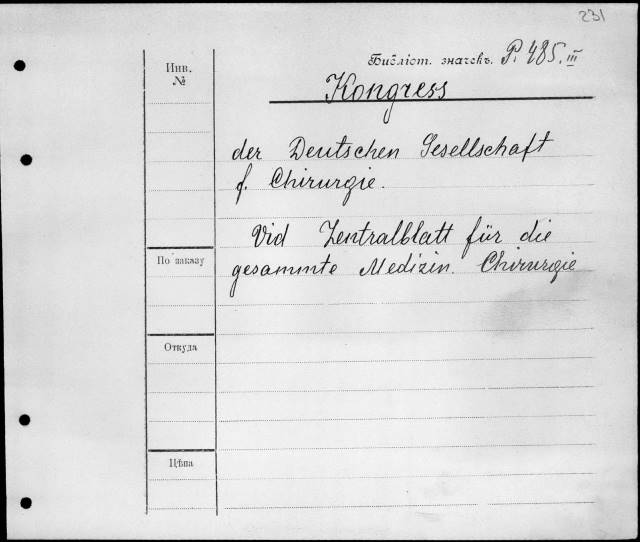 231
Инв.
№
Библіот. значекъ. P. 485. III
Kongress
der Deutschen Gesellschaft
f. Chirurgie.
Vid Zentralblatt für die
По заказу
gesammte Medizin. Chirurgie
Откуда
Цѣна